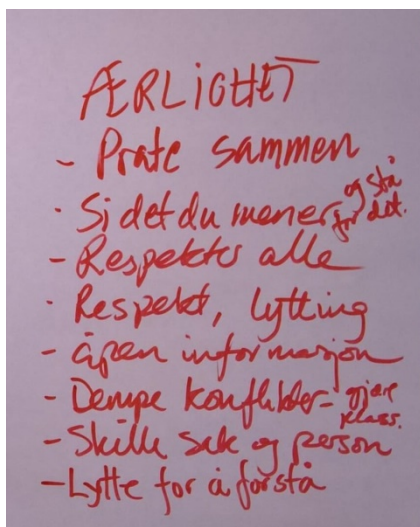 ÆRLIGHET
- Prate sammen
- Si det du mener og stå for det.
- Respekter alle
- Respekt, lytting
- åpen informasjon
- Dempe konflikter -
- Skille sak og person
- Lytte for å forstå